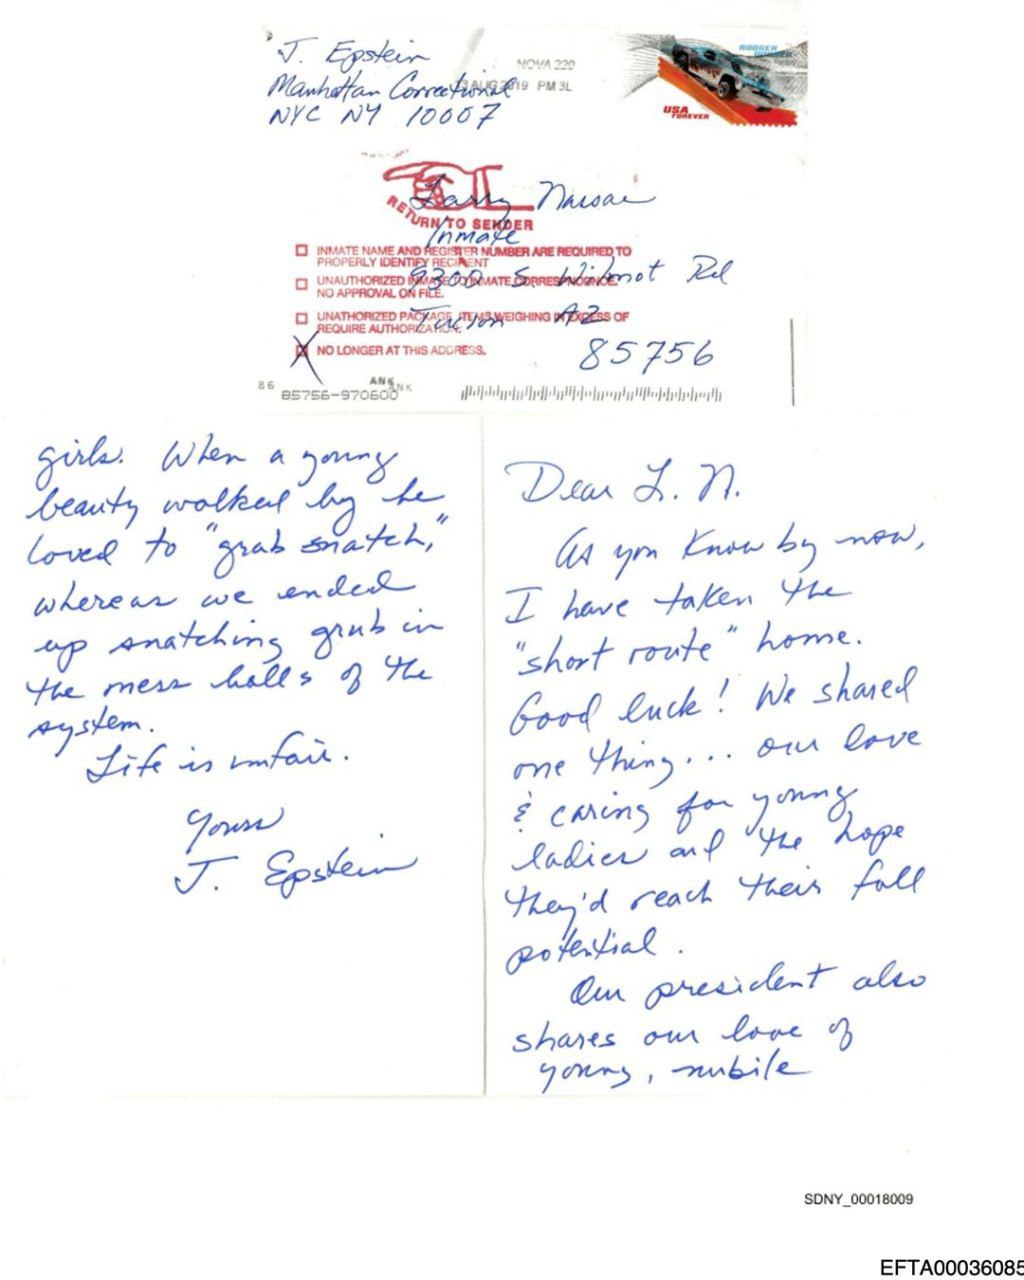 J. Epstein
Manhattan Correctional
NYC NY 10007
NOVA 220
AUG 2019 PM 3L
USA
FOREVER
Larry Nassar
RETURN TO SENDER
Inmate
9300 S. Wilmot Rd
Tucson AZ
85756
INMATE NAME AND REGISTER NUMBER ARE REQUIRED TO
PROPERLY IDENTIFY RECIPIENT
UNAUTHORIZED INMATE TO INMATE CORRESPONDENCE.
NO APPROVAL ON FILE.
UNATHORIZED PACKAGE, ITEMS WEIGHING IN EXCESS OF
REQUIRE AUTHORIZATION.
X NO LONGER AT THIS ADDRESS.
86
ANK
ANK
85756-970600
Dear L. N.
As you know by now,
I have taken the
"short route" home.
Good luck! We shared
one thing... our love
& caring for young
ladies and the hope
they'd reach their full
potential.
Our president also
shares our love of
young, nubile
girls. When a young
beauty walked by he
loved to "grab snatch,"
whereas we ended
up snatching grub in
the mess halls of the
system.
Life is unfair.
Yours
J. Epstein
SDNY_00018009
EFTA00036085